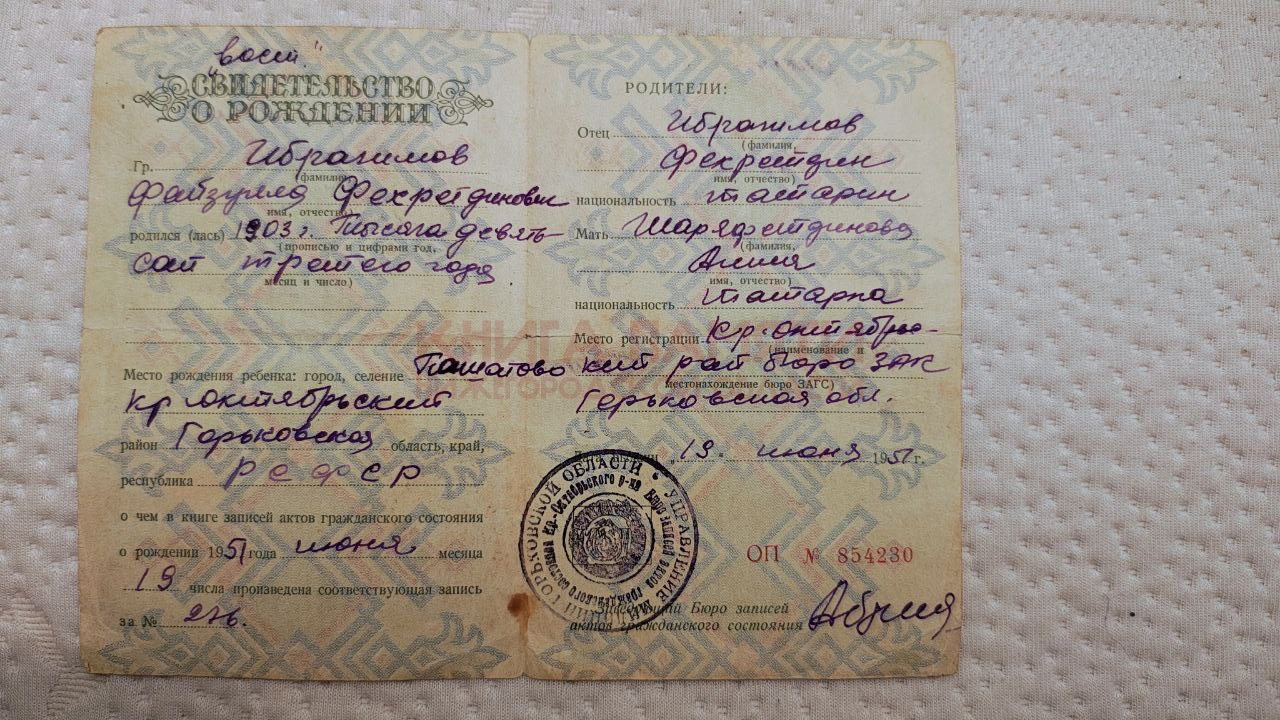 "восст"
СВИДЕТЕЛЬСТВО
О РОЖДЕНИИ
Гр. Ибрагимов
(фамилия,
Файзулла Фехретдинович
имя, отчество)
родился (лась) 1903 г. Тысяча девять-
(прописью и цифрами год,
сот третьего года
месяц и число)
Место рождения ребенка: город, селение Пошатово
Кр. октябрьский
район Горьковская область, край,
республика РСФСР
о чем в книге записей актов гражданского состояния
о рождении 1951 года июня месяца
19 числа произведена соответствующая запись
за №
РОДИТЕЛИ:
Отец Ибрагимов
(фамилия,
Фехретдин
имя, отчество)
национальность татарин
Мать Шаряфетдинова
(фамилия,
Алия
имя, отчество)
национальность татарка
Место регистрации Кр. октябрьс-
(наименование и
кий рай бюро ЗАК
местонахождение бюро ЗАГС)
Горьковская обл.
"19. июня 1951 г.
ОП № 854230
Заведующий Бюро записей
актов гражданского состояния
КНИГА ПАМЯТИ
НИЖЕГОРОДСКОЙ
ГОРЬКОВСКОЙ ОБЛАСТИ • УПРАВЛЕНИЕ
Кр.-Октябрьского р-на Бюро записей актов гражданского состояния